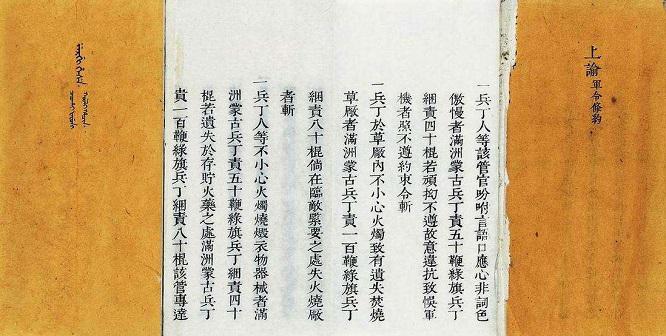 上諭軍令條約
一兵丁人等該管官吩咐言語口應心非詞色
傲慢者滿洲蒙古兵丁責五十鞭綠旗兵丁
綑責四十棍若頑抝不遵故意違抗致悞軍
機者照不遵約束令斬
一兵丁於草廠內不小心火燭致有遺失焚燒
草廠者滿洲蒙古兵丁責一百鞭綠旗兵丁
綑責八十棍倘在臨敵緊要之處失火燒廠
者斬
一兵丁人等不小心火燭燒燬衣物器械者滿
洲蒙古兵丁責五十鞭綠旗兵丁綑責四十
棍若遺失於存貯火藥之處滿洲蒙古兵丁
責一百鞭綠旗兵丁綑責八十棍該管專達